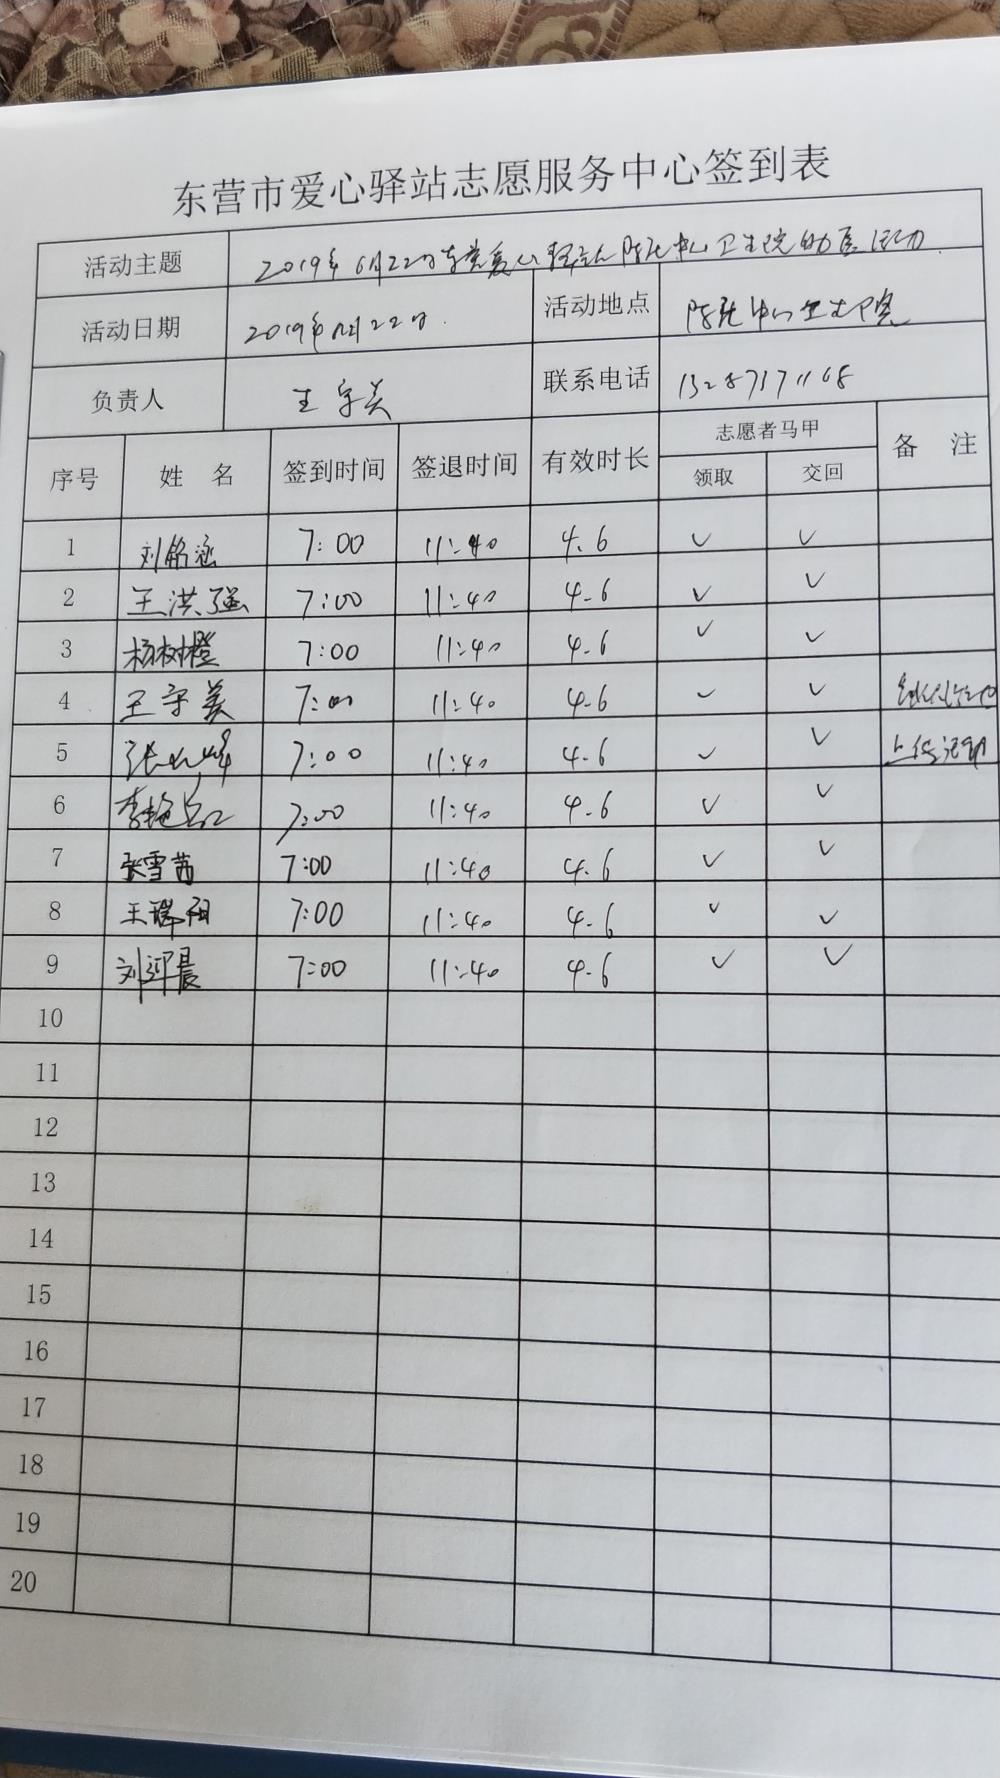 东营市爱心驿站志愿服务中心签到表
活动主题 2019年6月22日东营爱心驿站 中心卫生院助医活动
活动日期 2019年6月22日 活动地点 中心卫生院
负责人 王守美 联系电话 13287171168
序号 姓名 签到时间 签退时间 有效时长 志愿者马甲 备注
领取 交回
1 刘铭涵 7:00 11:40 4.6 ✓ ✓
2 王洪强 7:00 11:40 4.6 ✓ ✓
3 杨树橙 7:00 11:40 4.6 ✓ ✓
4 王守美 7:00 11:40 4.6 ✓ ✓
5 张 峰 7:00 11:40 4.6 ✓ ✓ 上传活动
6 李艳 7:00 11:40 4.6 ✓ ✓
7 张雪茜 7:00 11:40 4.6 ✓ ✓
8 王瑞阳 7:00 11:40 4.6 ✓ ✓
9 刘 晨 7:00 11:40 4.6 ✓ ✓
10
11
12
13
14
15
16
17
18
19
20